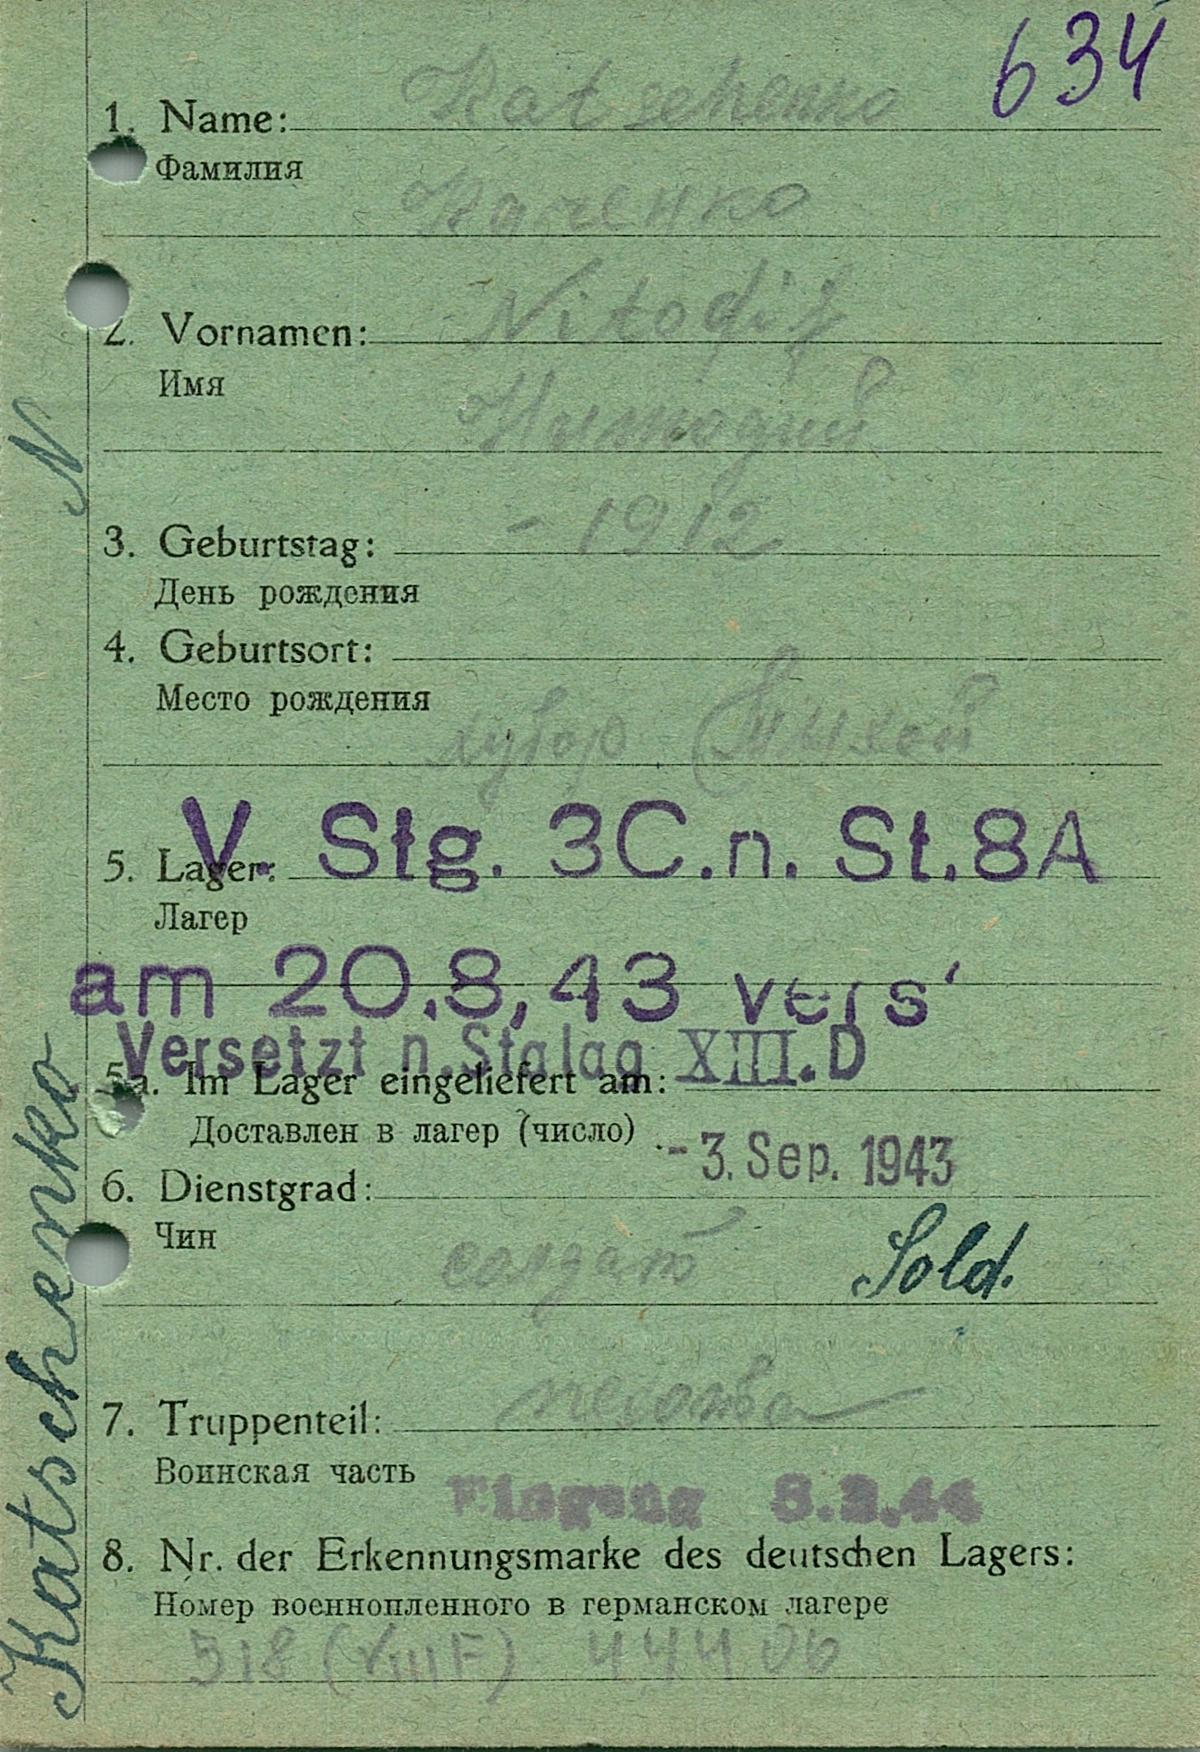 634
1. Name: Katschenko
Фамилия
Каченко
2. Vornamen: Nitodij
Имя
Нитодий
3. Geburtstag: - 1912
День рождения
4. Geburtsort:
Место рождения
хутор
V. Stg. 3C. n. St. 8A
5. Lager:
Лагер
am 20.8,43 vers'
Versetzt n. Stalag XIII. D
5a. Im Lager eingeliefert am:
Доставлен в лагер (число)
- 3. Sep. 1943
6. Dienstgrad:
Чин
солдат Sold.
7. Truppenteil: пехота
Воинская часть
Eingang 8.2.44
8. Nr. der Erkennungsmarke des deutschen Lagers:
Номер военнопленного в германском лагере
318 (VIII F) 44406
Katschenko N